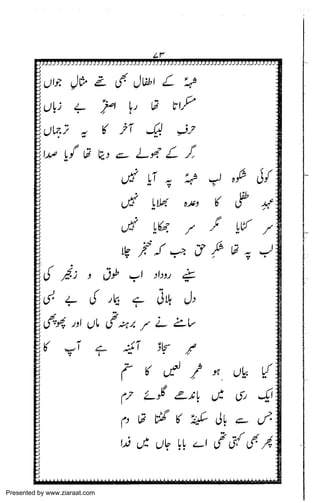 ۷۳
شہؑ کے اطفال بھی تھے مثالِ جواں
مسکراتا تھا رہا اصغرؑ بے زباں
حرفِ لبیک آخر کا یہ ترجماں
گر کے جھولے سے دیتا تھا گویا صدا
کوئی شکوہ لبِ شہؑ پہ آیا نہیں
عہدِ طفلی کا وعدہ بھلایا نہیں
سر کٹایا مگر سر جھکایا نہیں
لب پہ تھا شکرِ حق جب کہ خنجر چلا
سنیے روداد اب طوق و زنجیر کی
دل ہلاتی ہے بیمار کی بے بسی
سامنے سر برہنہ تھی ماں اور پھوپھی
صبرِ سجادؑ آئینہ ہے آپ کا
کیا بیاں ہو شمرِ لعیں کا ستم
ایک رسی میں باندھے گلوئے حرم
جس سے بالی سکینہؑ کا گھٹتا تھا دم
پھر بھی کہتی تھی اے بابا جاں میں فدا
Presented by www.ziaraat.com